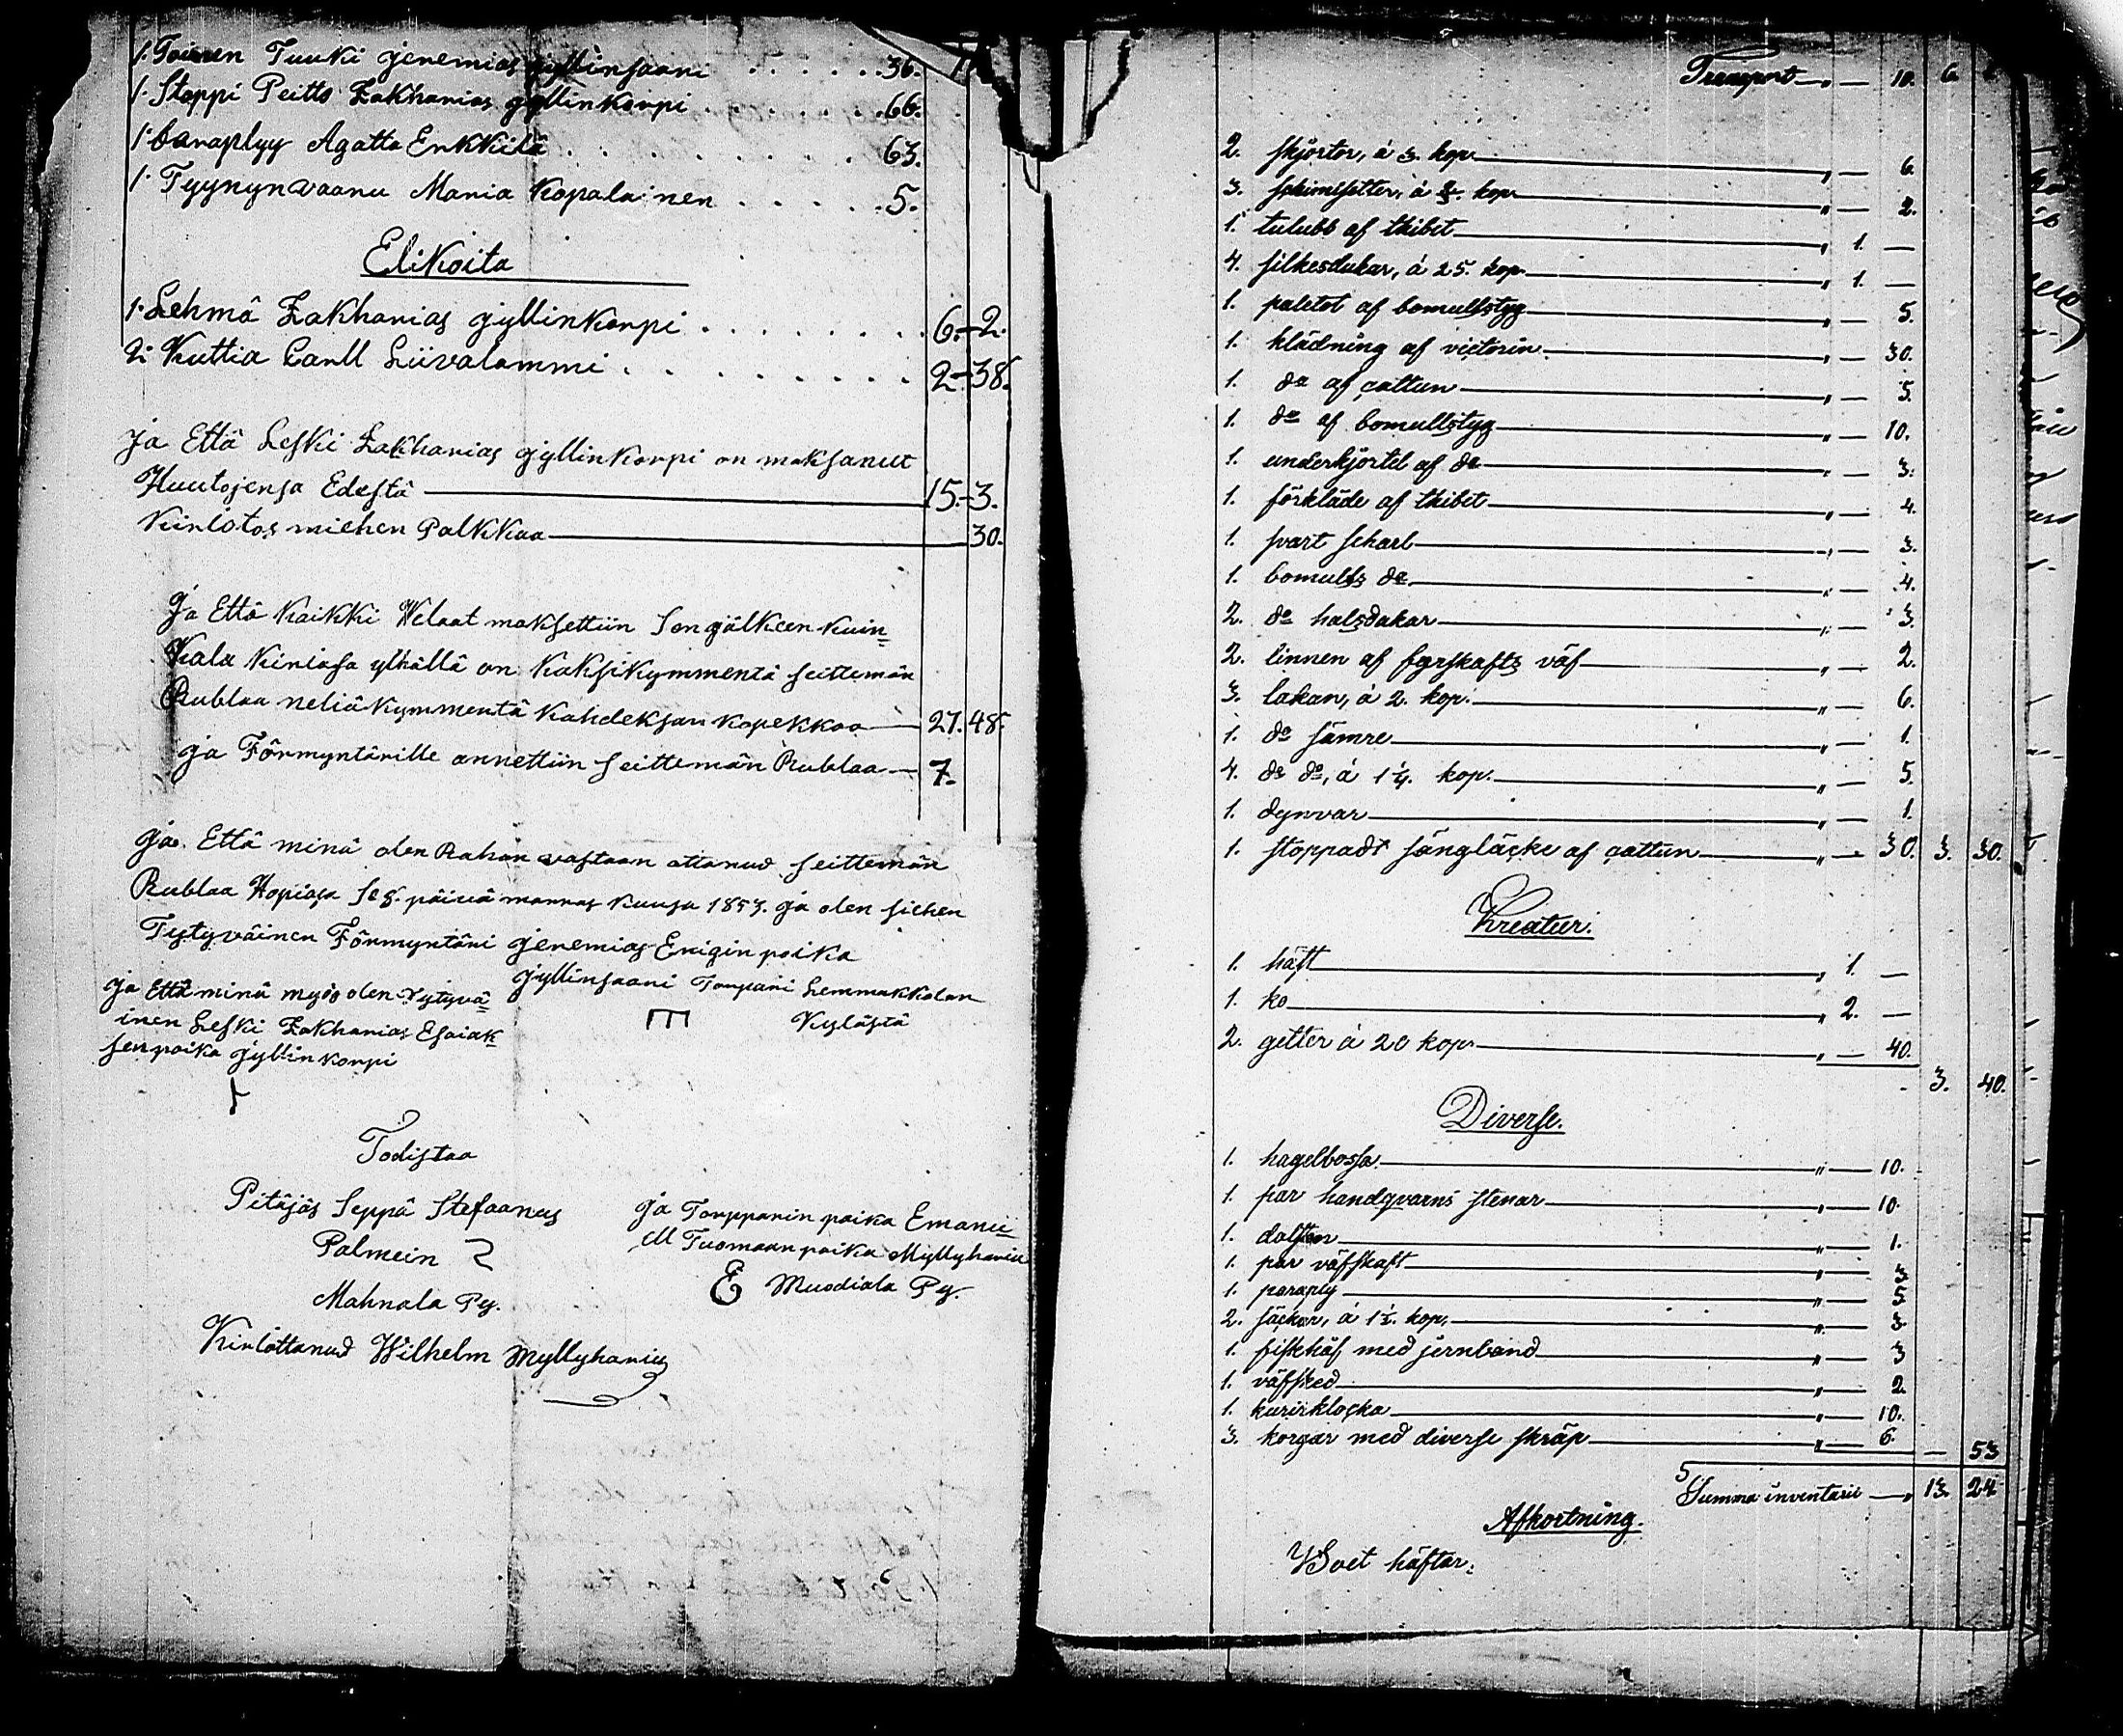 1. Toinen Tuuki Jeremias Gyllinsaari . . . . . . 36.
1. Stoppi Peitto Zakharias Gyllinkorpi . . . . . . . 66.
1. Caraplyy Agatta Erkkilä . . . . . . . . 63.
1. Tyynynvaaru Maria Kopalainen . . . . . . 5.
Elikoita
1. Lehmä Zakharias Gyllinkorpi . . . . . . . . 6.-2.
2. Kuttia Carll Liivalammi . . . . . . . . . 2-38.
Ja Että Leski Zakharias Gyllinkorpi on maksanut
Huutojensa Edestä 15.-3.
Kirlotos miehen Palkkaa 30.
Ja Että Kaikki Welaat maksettiin Sen jälkeen kuin=
Kalu Kirjasa ylhällä on Kaksikymmentä seittemän
Rublaa neliäkymmentä Kahdeksan Kopekkaa 27.48.
Ja Förmyntärille annettiin Seittemän Rublaa 7.
Ja. Että minä olen Rahan vastaan ottanud seittemän
Rublaa Hopiasa Se 8. päivä marras kuusa 1853. Ja olen siehen
Tytyväinen Förmyntäri Jeremias Erigin poika
Gyllinsaari Torpari Lemmakkalan
Kylästä
Ja Että minä myös olen Tytyvä=
inen Leski Zakharias Esaiak=
sen poika Gyllinkorpi
Todistaa
Pitäjäs Seppä Stefaanus
Palmein
Mahnala Py.
Ja Torpparin poika Emanue=
ll Tuomaan poika Myllyharju
E Muodiala Py.
Kirlottanud Wilhelm Myllyharju
Transport " — 10. 6
2. skjortor, á 3. kop " — 6
3. á 2/3. kop " — 2.
1. tulubb af thibet " 1. —
4. silkesdukar, á 25. kop. " 1. —
1. paletot af bomullstyg " — 5.
1. klädning af victorin " — 30.
1. do af cattun " — 5.
1. do af bomullstyg " — 10.
1. underkjortel af do " — 3.
1. förkläde af thibet " — 4.
1. svart scharl " — 3.
1. bomulls do " — 4.
2. do halsdukar " — 3.
2. linnen af fyrskafts väf " — 2.
3. lakan, á 2. kop. " — 6.
1. do sämre " — 1.
4. do do, á 1 1/4. kop. " — 5.
1. dynvar " — 1.
1. stoppadt sängtäcke af cattun " — 30. 3. 30.
Kreatur.
1. häst " 1. —
1. ko " 2. —
2. getter á 20 kop. " — 40.
3. 40.
Diverse.
1. hagelbössa " — 10.
1. par handqvarns stenar " — 10.
1. " — 1.
1. par väfskaft " — 3
1. paraply " — 5
2. säckar, á 1 1/2. kop. " — 3
1. fiskhåf med jernband " — 3
1. väfsked " — 2.
1. kurirklocka " — 10.
3. korgar med diverse skräp " — 6. — 53
Summa inventarii — 13. 24
Afkortning.
Boet häftar: